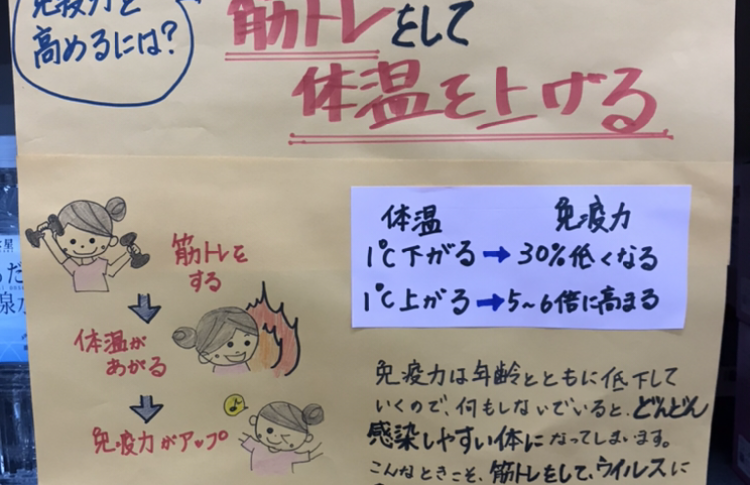 免疫力を
高めるには?
筋トレをして
体温を上げる
筋トレを
する
体温が
あがる
免疫力がアップ
体温 免疫力
1℃下がる→30%低くなる
1℃上がる→5~6倍に高まる
免疫力は年齢とともに低下して
いくので、何もしないでいると、どんどん
感染しやすい体になってしまいます。
こんなときこそ、筋トレをして、ウイルスに